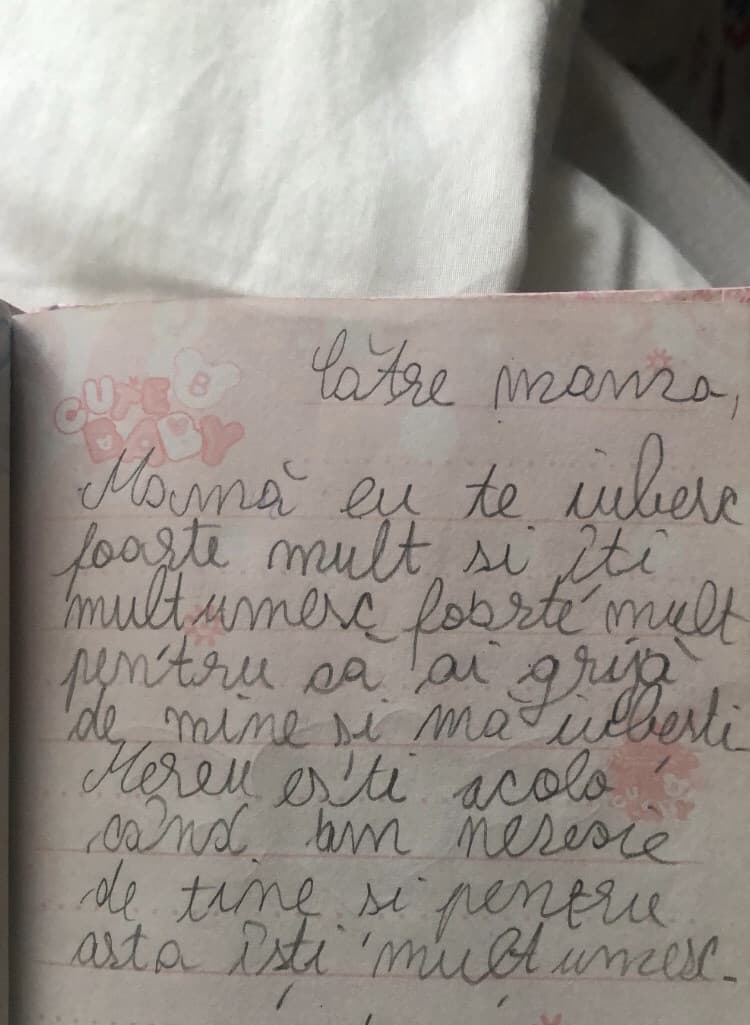 CUTE
BABY
Către mama,
Mamă eu te iubesc
foarte mult si îti
multumesc foarte mult
pentru că ai grijă
de mine si mă iubesti.
Mereu esti acolo
când am nevoie
de tine si pentru
asta îsti multumesc.